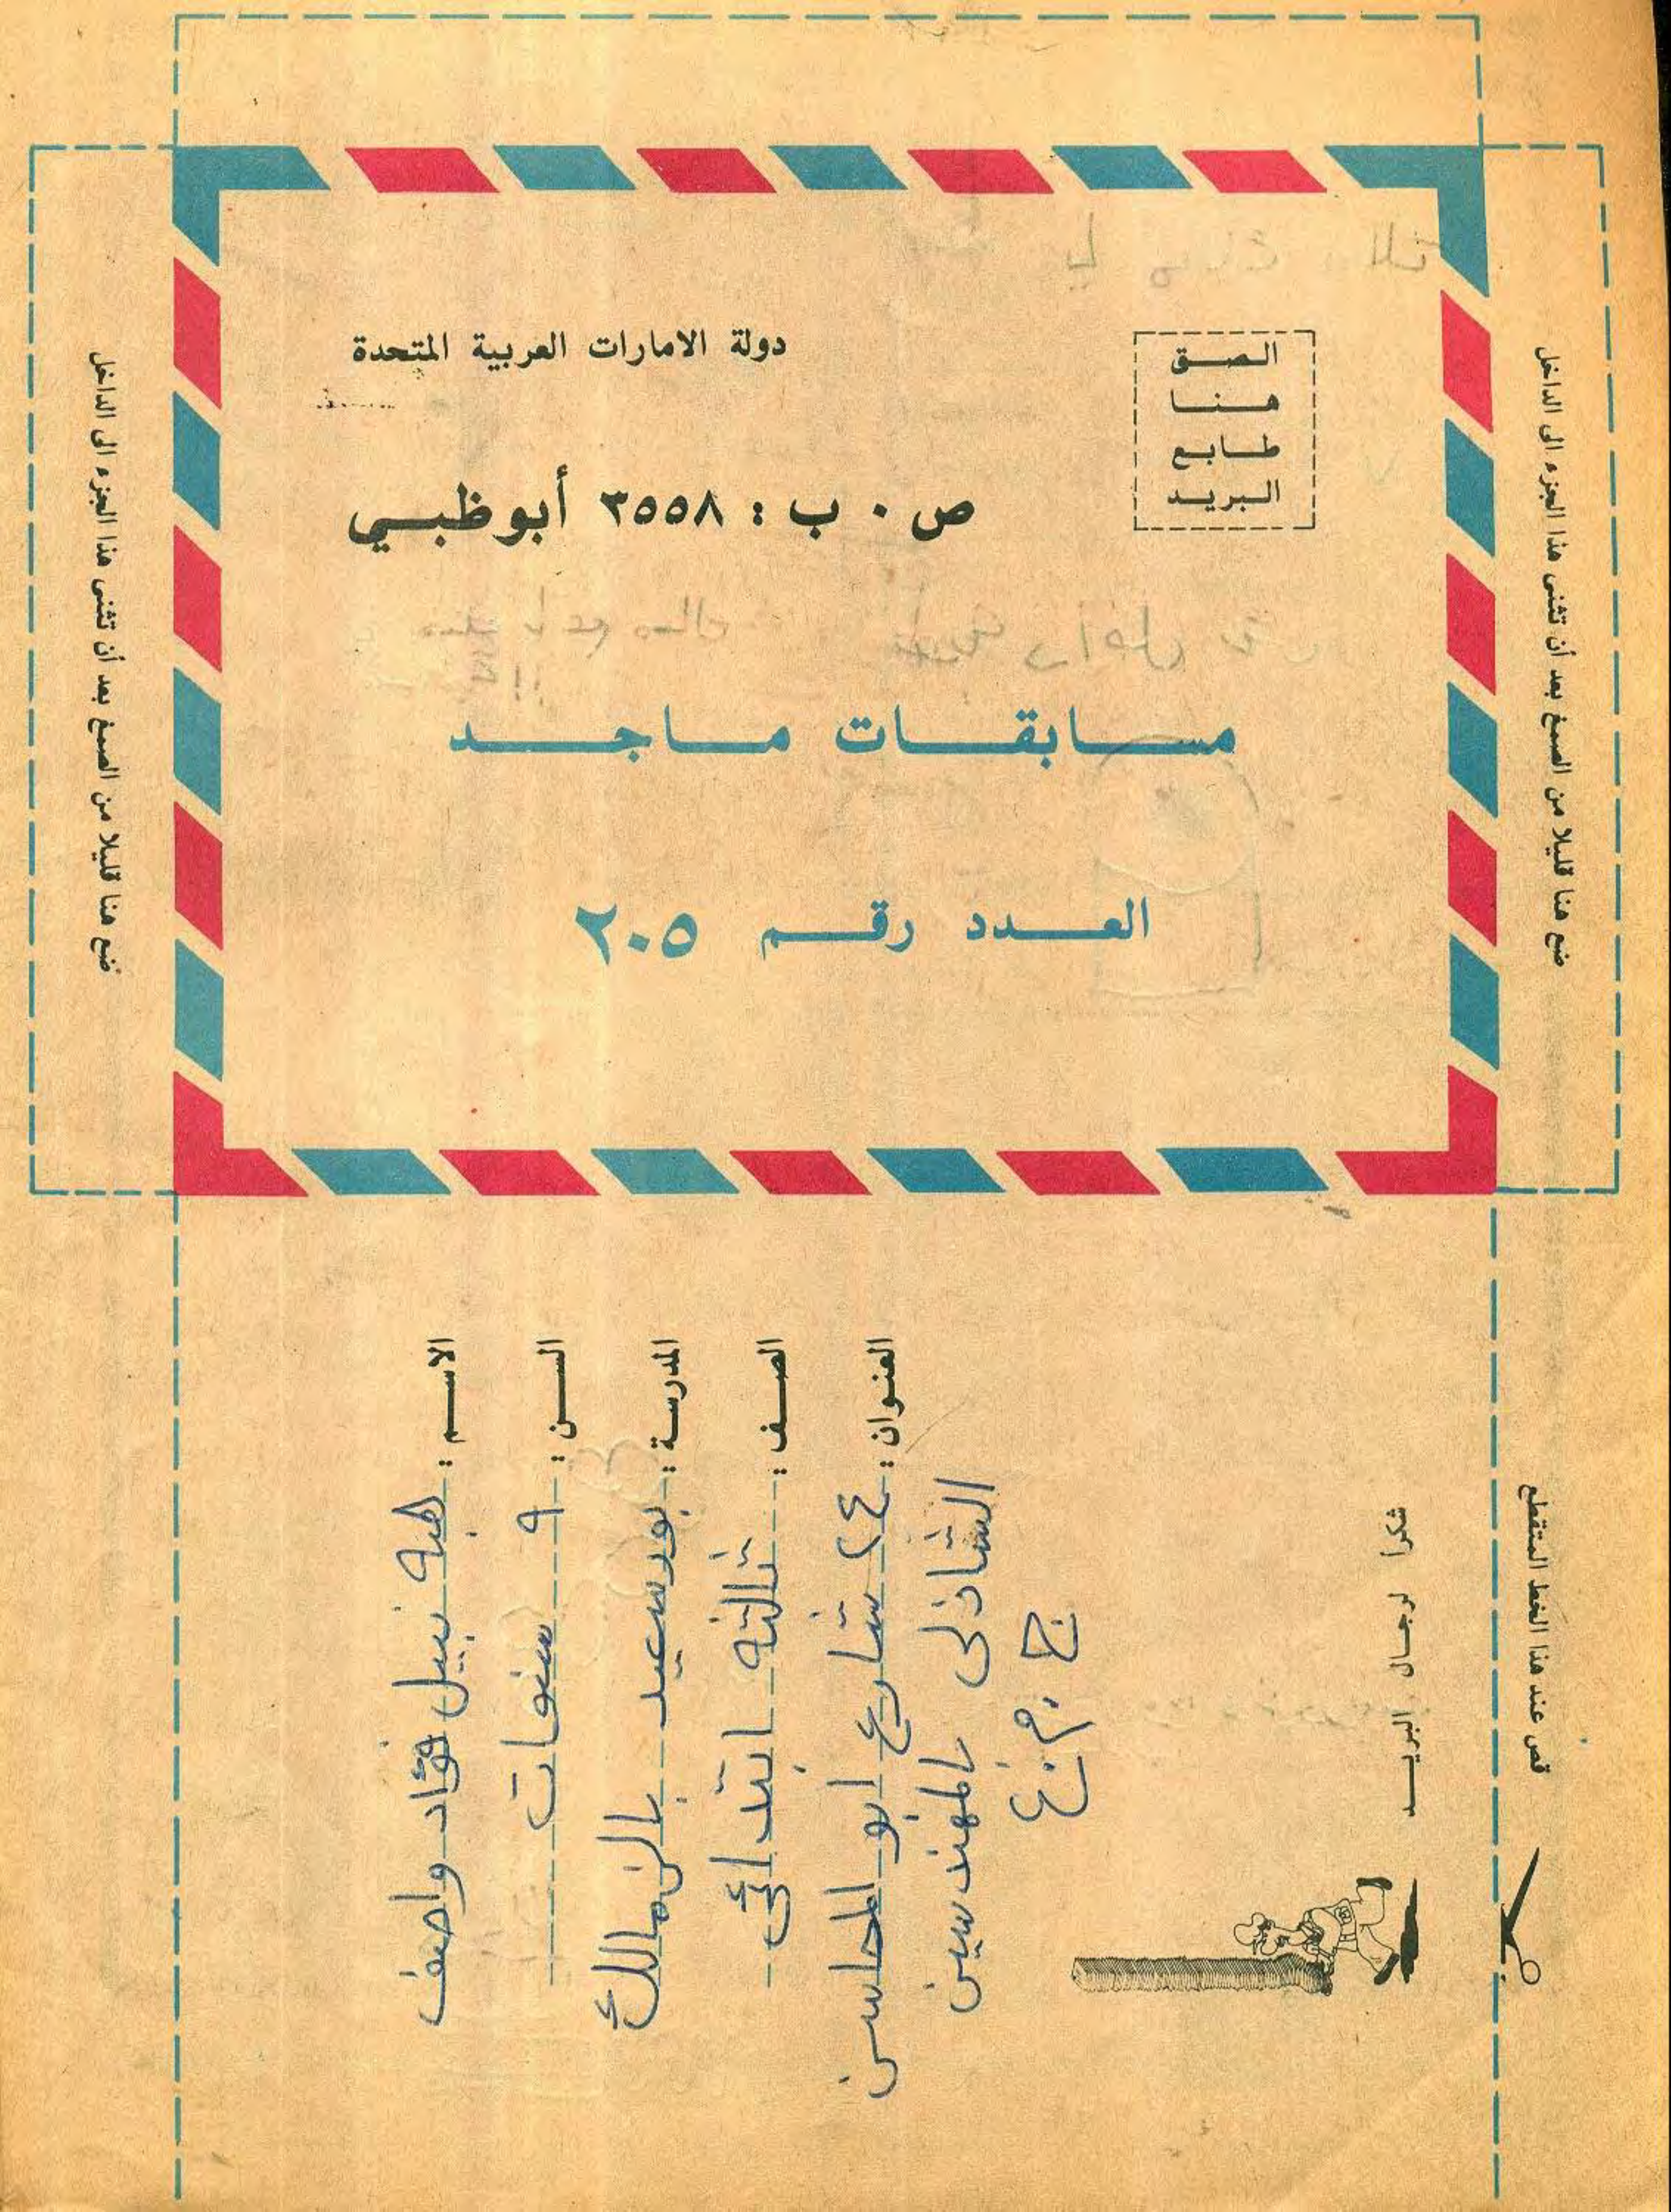 دولة الامارات العربية المتحدة
الصق
هنا
طابع
البريد
ص ٠ ب : ٣٥٥٨ أبوظبي
مسابقات ماجد
العدد رقم ٢٠٥
ضع هنا قليلا من الصمغ بعد أن تثنى هذا الجزء الى الداخل
ضع هنا قليلا من الصمغ بعد أن تثنى هذا الجزء الى الداخل
الاسم : هبه نبيل فؤاد واصف
السن : ٩ سنوات
المدرسة : بورسعيد بالزمالك
الصف : ثالثه ابتدائى
العنوان : ٢٤ شارع ابو المحاسن
الشاذلى بالمهندسين
ج . م . ع
شكرا لرجال البريد
قص عند هذا الخط المتقطع